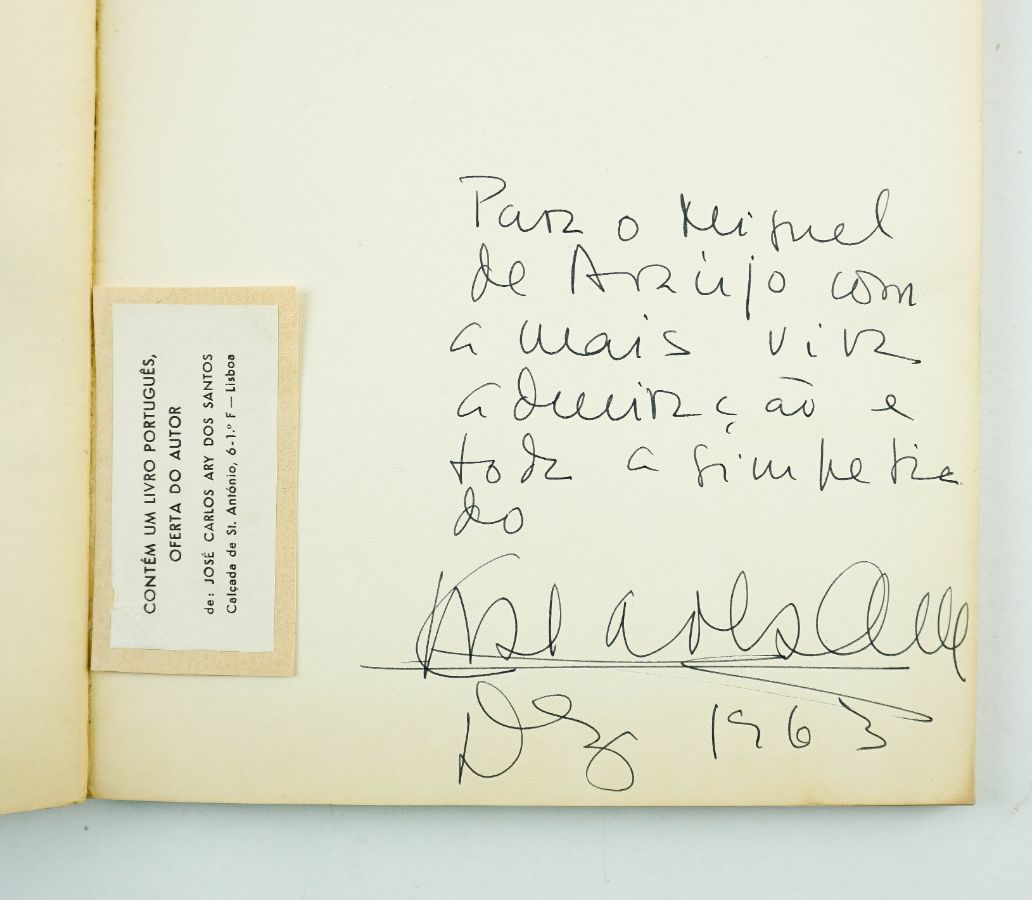 CONTÉM UM LIVRO PORTUGUÊS,
OFERTA DO AUTOR
de: JOSÉ CARLOS ARY DOS SANTOS
Calçada de St. António, 6-1.º F — Lisboa
Para o Miguel
de Araújo com
a mais viva
admiração e
toda a simpatia
do
Dez 1963